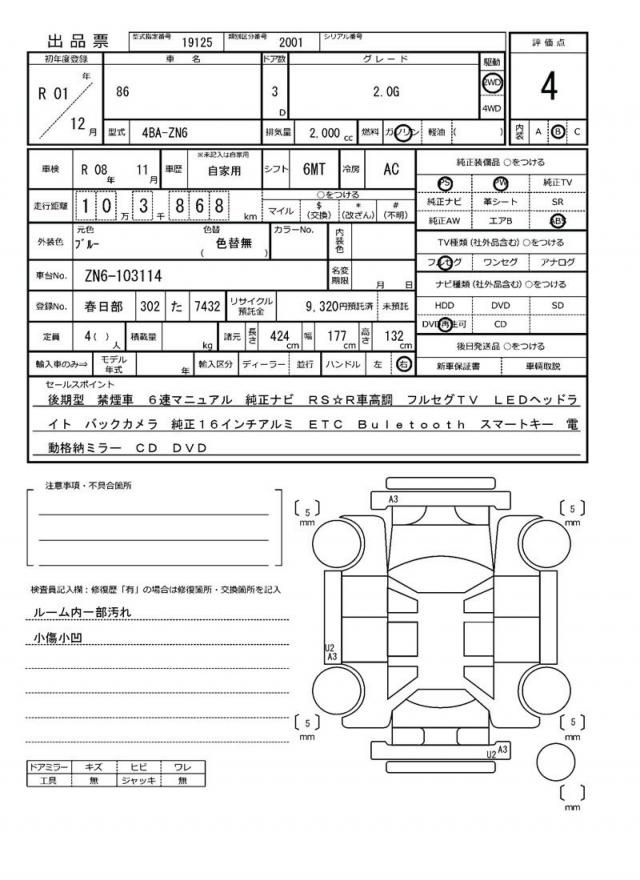 出品票 型式指定番号 19125 類別区分番号 2001 シリアル番号
評価点
4
内装 A B C
初年度登録 車名 ドア数 グレード 駆動
R 01 年 12 月 86 3 D 2.0G 2WD 4WD
型式 4BA-ZN6 排気量 2,000 cc 燃料 ガソリン 軽油 ( )
車検 R 08 年 11 月 車歴 ※未記入は自家用 自家用 シフト 6MT 冷房 AC
走行距離 1 0 万 3 千 8 6 8 km ○をつける マイル $ (交換) * (改ざん) # (不明)
外装色 元色 ブルー 色替 ( 色替無 ) カラーNo. 内装色
車台No. ZN6-103114 名変期限 月 日
登録No. 春日部 302 た 7432 リサイクル預託金 9,320円預託済 未預託
定員 4( ) 人 積載量 kg 諸元 長さ 424 cm 幅 177 cm 高さ 132 cm
輸入車のみ⇒ モデル年式 年 輸入区分 ディーラー 並行 ハンドル 左 右
純正装備品 ○をつける
PS PW 純正TV
純正ナビ 革シート SR
純正AW エアB ABS
TV種類(社外品含む) ○をつける
フルセグ ワンセグ アナログ
ナビ種類(社外品含む) ○をつける
HDD DVD SD
DVD再生可 CD
後日発送品 ○をつける
新車保証書 車輌取説
セールスポイント
後期型 禁煙車 6速マニュアル 純正ナビ RS☆R車高調 フルセグTV LEDヘッドラ
イト バックカメラ 純正16インチアルミ ETC Buletooth スマートキー 電
動格納ミラー CD DVD
注意事項・不具合箇所
検査員記入欄：修復歴「有」の場合は修復箇所・交換箇所を記入
ルーム内一部汚れ
小傷小凹
ドアミラー キズ ヒビ ワレ
工具 無 ジャッキ 無
A3
5 mm
5 mm
U2
A3
5 mm
5 mm
U2 A3
mm